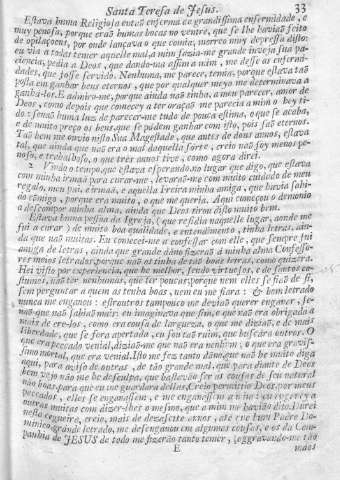 Santa Teresa de Jesus. 33
Estava huma Religiosa entaõ enferma de grandissima enfermidade, e
muy penosa, porque eraõ humas bocas no ventre, que se lhe haviaõ feito
de opilaçoens, por onde lançava o que comia, morreo muy depressa disso:
eu via a todas temer aquelle mal, a mim fazia-me grande inveja sua pa-
ciencia, pedia a Deos, que dando-ma assim a mim, me désse as enfermi-
dades, que fosse servido. Nenhuma, me parece, temia, porque estava taõ
posta em ganhar bens eternos, que por qualquer meyo me determinava a
ganhallos. E admiro-me, porque ainda naõ tinha, a meu parecer, amor de
Deos, como depois que começey a ter oraçaõ me parecia a mim o hey ti-
do: senaõ huma luz de parecer-me tudo de pouca estima, o que se acaba,
e de muito preço os bens que se pódem ganhar com isso, pois saõ eternos.
Taõ bem me ouvio nisto Sua Magestade, que antes de dous annos, estava
tal, que ainda que naõ era o mal daquella sorte, creio naõ foy menos pe-
noso, e trabalhoso, o que tres annos tive, como agora direi.
2 Vindo o tempo, que estava esperando, no lugar que digo, que estava
com minha irmãa para curar-me, levaraõ-me com muito cuidado de meu
regalo, meu pai, e irmãa, e aquella Freira minha amiga, que havia sahi-
do cõmigo, porque era muito, o que me queria. Aqui começou o demonio
a descompor minha alma, ainda que Deos tirou disso muito bem.
Estava huma pessoa da Igreja, que residia naquelle lugar, aonde me
fui a curar, de muito boa qualidade, e entendimento, tinha letras, ain-
da que naõ muitas. Eu comecei-me a confessar com elle, que sempre fui
amiga de letras, ainda que grande dãno fizeraõ á minha alma Confesso-
res meios letrados, porque naõ os tinha de taõ boas letras, como quizera.
Hei visto por experiencia, que he melhor, sendo virtuosos, e de santos co-
stumes, naõ ter nenhumas, que ter poucas, porque nem elles se fiaõ de si,
sem perguntar a quem as tenha boas, nem eu me fiara: & bom letrado
nunca me enganou: estroutros tampouco me deviaõ querer enganar, se-
naõ que naõ sabiaõ mais: eu imaginava que sim, e que naõ era obrigada a
mais de crer-los, como era cousa de largueza, o que me diziaõ, e de mais
liberdade, que se fora apertada, eu sou taõ ruim, que buscára outros. O
que era peccado venial, diziaõ-me que naõ era nenhum; o que era gravis-
simo mortal, que era venial. Isto me fez tanto dãno, que naõ he muito diga
aqui, para aviso de outras, de taõ grande mal, que para diante de Deos
bem vejo naõ me he desculpa, que bastavaõ ser as cousas de seu natural
naõ boas, para que eu me guardara dellas. Creio permittio Deos, por meus
peccados, elles se enganassem, e me enganassem a mim: eu enganey a
outras muitas com dizer-lhes o mesmo, que a mim me haviaõ dito. Durei
nesta cegueira, creio, mais de dezasete annos, até que hum Padre Do-
minico grande letrado, me desenganou em algumas cousas, e os da Com-
panhia de JESUS de todo me fizeraõ tanto temer, aggravando-me taõ
E máos